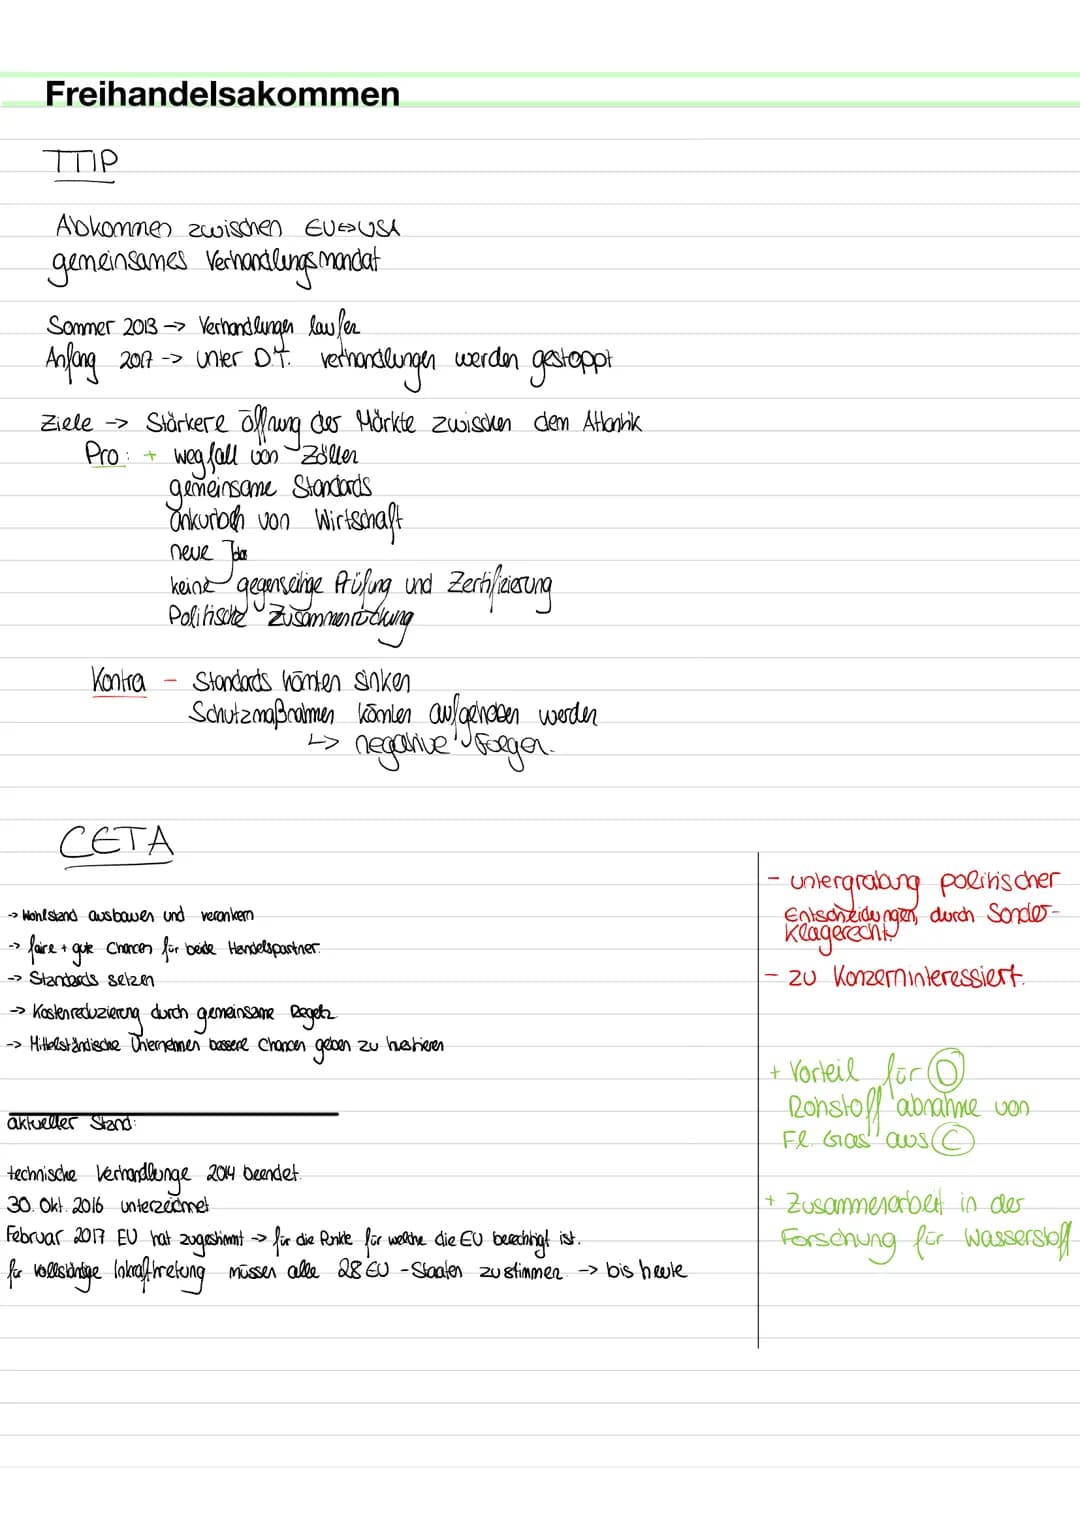 Freihandelsakommen
TTIP
Abkommen zwischen EU⇔USA
gemeinsames Verhandlungsmandat
Sommer 2013 -> Verhandlungen laufen
Anfang 2017 -> unter D.T. verhandlungen werden gestoppt
Ziele -> Stärkere öffnung der Märkte zwischen dem Atlantik
Pro: + wegfall von Zöllen
gemeinsame Standards
ankurbeln von Wirtschaft
neue Jobs
keine gegenseitige Prüfung und Zertifizierung
Politische Zusammenrückung
Kontra - Standards könnten sinken
Schutzmaßnahmen könnten aufgehoben werden
↳ negative Folgen.
CETA
-> Wohlstand ausbauen und verankern
-> faire + gute Chancen für beide Handelspartner.
-> Standards setzen
-> Kostenreduzierung durch gemeinsame Regeln
-> Mittelständische Unternehmen bessere Chancen geben zu
aktueller Stand:
technische Verhandlunge 2014 beendet.
30. Okt. 2016 unterzeichnet
Februar 2017 EU hat zugestimmt -> für die Punkte für welche die EU berechtigt ist.
für vollständige Inkrafttretung müssen alle 28 EU-Staaten zustimmen. -> bis heute
- untergrabung politischer
Entscheidungen, durch Sonder-
klagerecht.
- zu Konzerninteressiert.
+ Vorteil für D
Rohstoff abnahme von
Fl. Gas aus C
+ Zusammenarbeit in der
Forschung für Wasserstoff